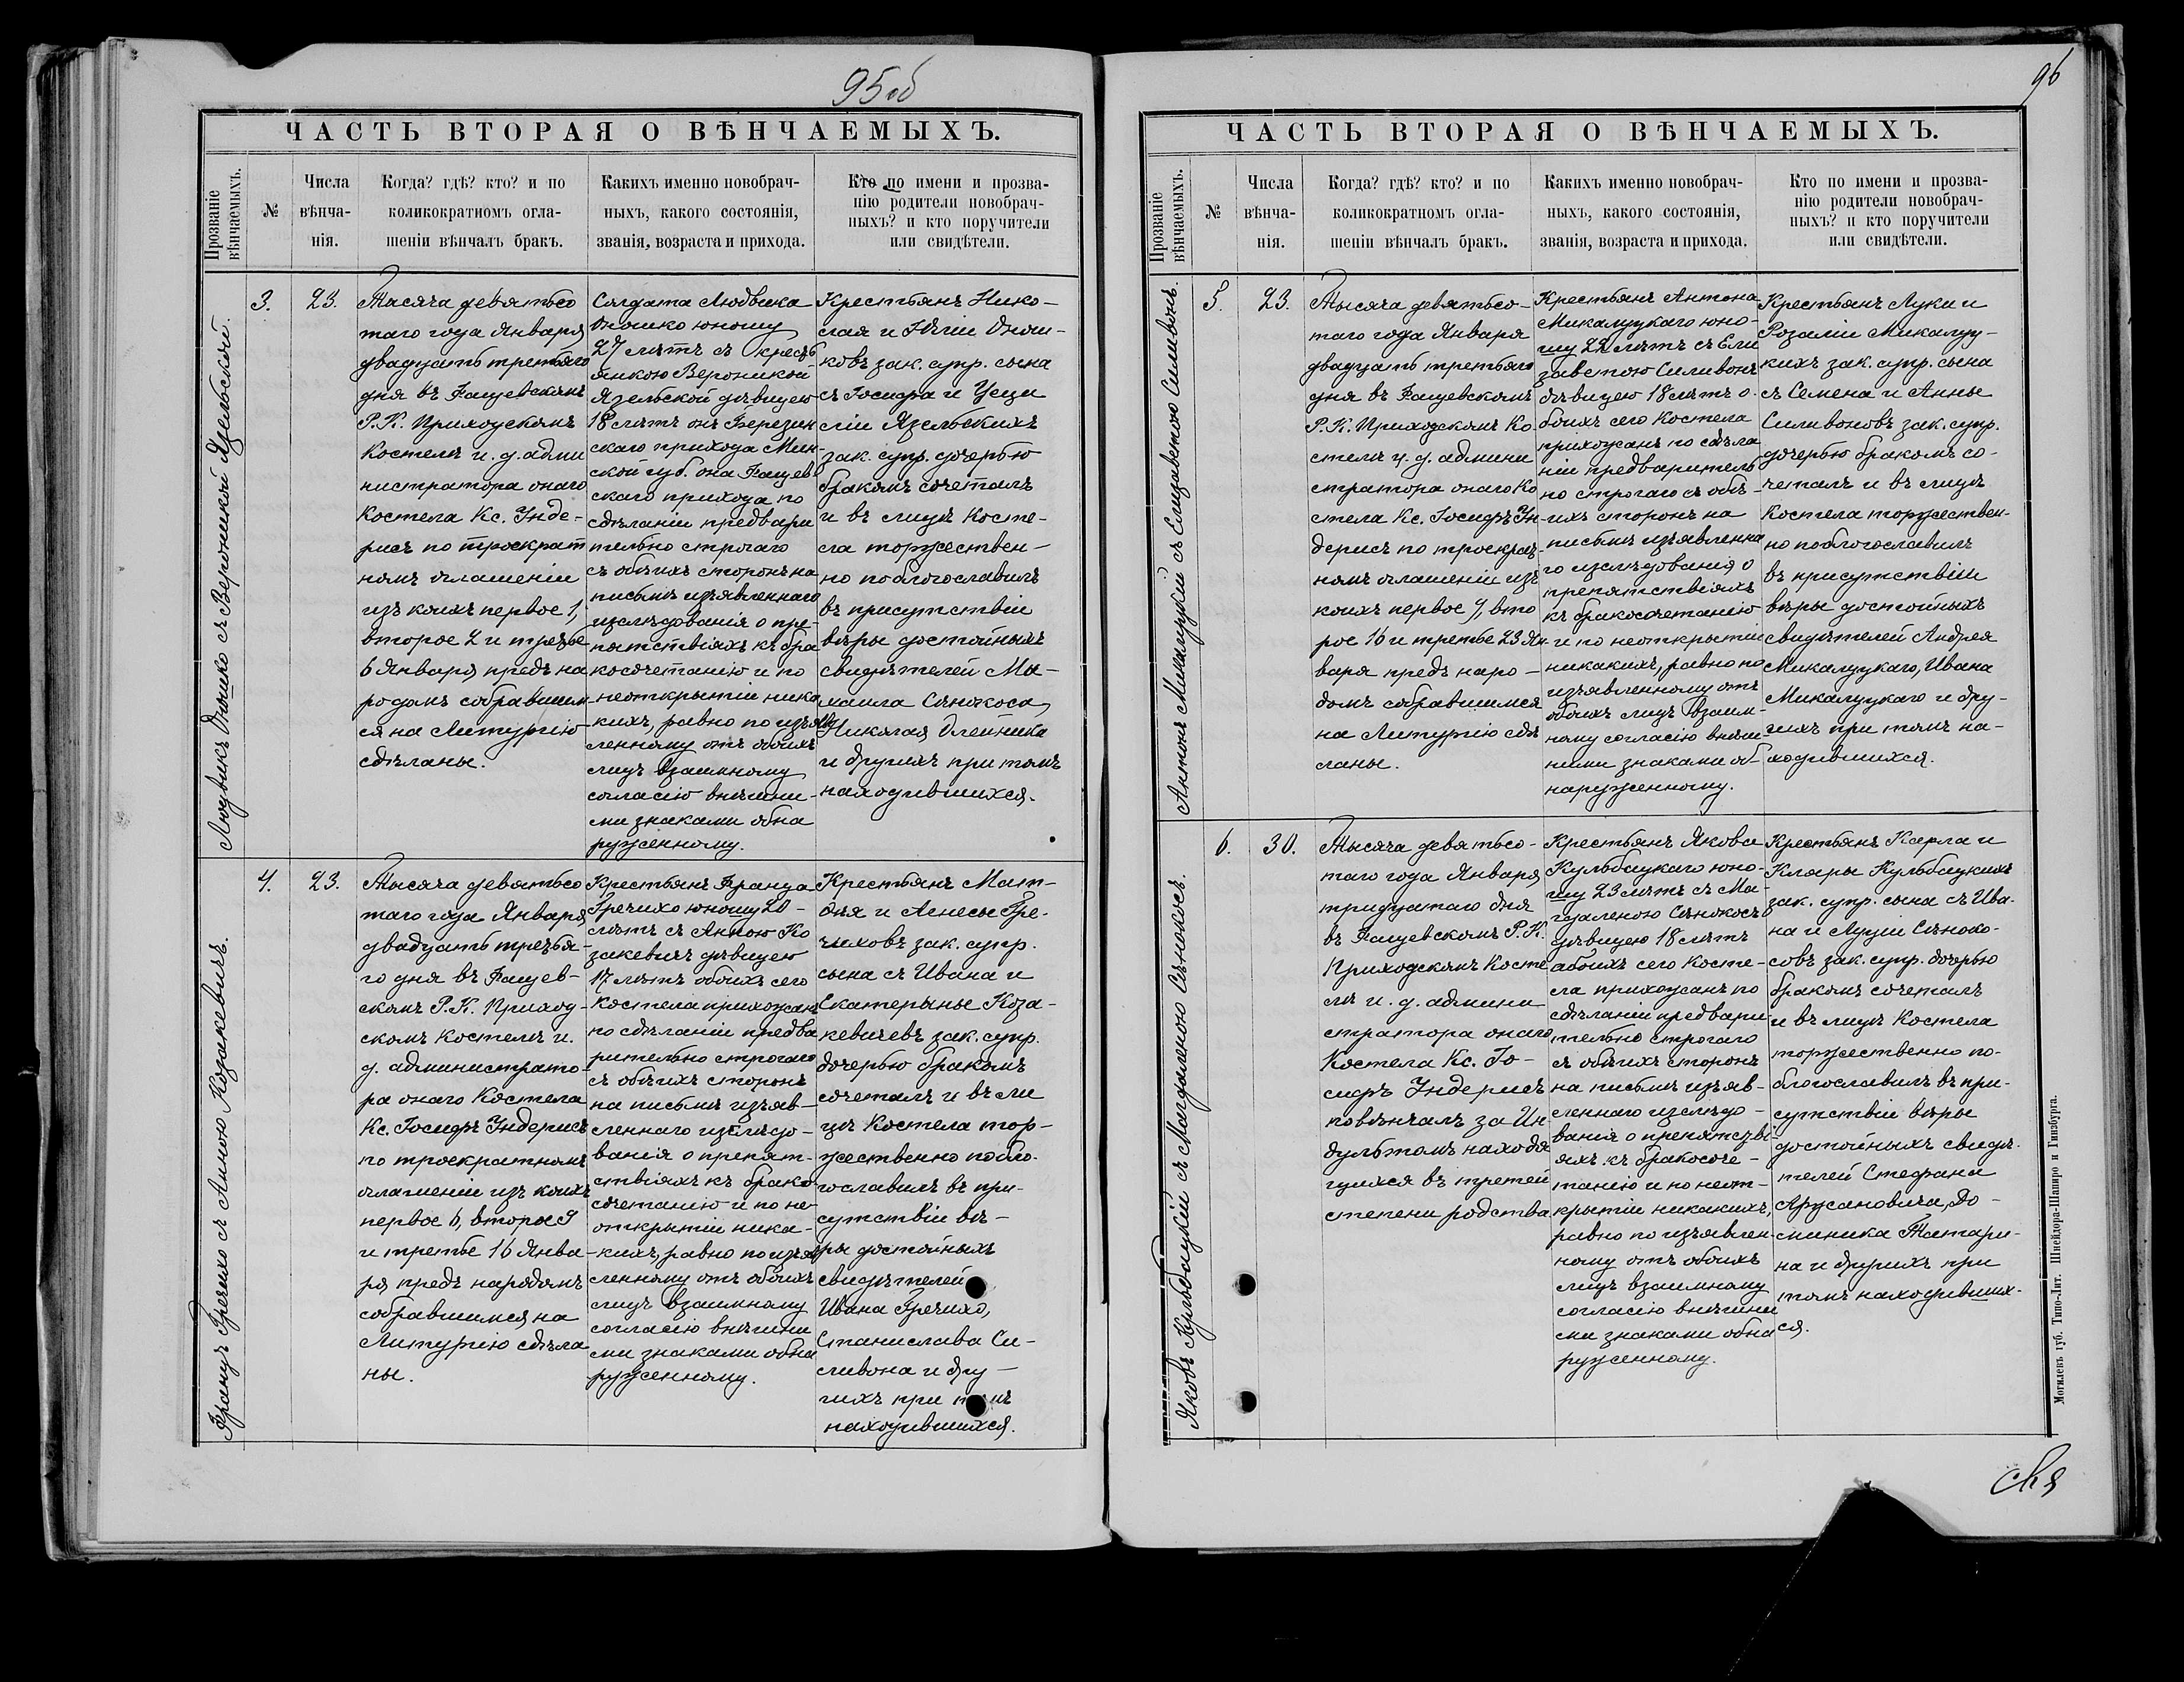 95об
ЧАСТЬ ВТОРАЯ О ВѢНЧАЕМЫХЪ.
Прозваніе
вѣнчаемыхъ.
№
Числа
вѣнча-
нія.
Когда? гдѣ? кто? и по
коликократномъ огла-
шеніи вѣнчалъ бракъ.
Какихъ именно новобрач-
ныхъ, какого состоянія,
званія, возраста и прихода.
Кто по имени и прозва-
нію родители новобрач-
ныхъ? и кто поручители
или свидѣтели.
Людвикъ Оношко съ Вероникой Язельской.
3.
23.
Тысяча девятьсо
таго года Января
двадцать третьяго
дня въ Фащевскомъ
Р. К. Приходскомъ
Костелѣ и. д. адми
нистратора онаго
Костела Кс. Инде-
рисъ по троекрат
номъ оглашеніи
изъ коихъ первое 1,
второе 2 и третье
6 Января предъ на
родомъ собравшим-
ся на Литургію
сдѣланы.
Солдата Людвика
Оношко юношу
27 лѣтъ съ крест
янкою Вероникой
Язельской дѣвицею
18 лѣтъ онъ Березин
скаго прихода Мин-
ской губ. она Фащев
скаго прихода по
сдѣланіи предвари
тельно строгаго
съ обѣихъ сторонъ на
письмѣ изъявленнаго
изслѣдованія о пре-
пятствіяхъ къ бра
косочетанію и по
неоткрытіи ника
кихъ, равно по изъяв
ленному отъ обоихъ
лицъ взаимному
согласію внѣшни-
ми знаками обна
руженному.
Крестьянъ Нико-
лая и Юліи Онош-
ковъ зак. супр. сына
съ Іосифа и Цеци
ліи Язельскихъ
зак. супр. дочерью
бракомъ сочеталъ
и въ лицѣ Косте-
ла торжествен-
но поблогославилъ
въ присутствіи
вѣры достойныхъ
свидѣтелей Ми-
хаила Сѣнокоса,
Николая Олейника
и другихъ при томъ
находившихся.
Францъ Гречихо съ Анною Козакевичъ.
4.
23.
Тысяча девятьсо
таго года Января
двадцать третья-
го дня въ Фащев-
скомъ Р. К. Приход-
скомъ Костелѣ и.
д. администрато-
ра онаго Костела
Кс. Іосифъ Индерисъ
по троекратномъ
оглашеніи изъ коихъ
первое 6, второе 9
и третье 16 Янва-
ря предъ народомъ
собравшимся на
Литургію сдѣла
ны.
Крестьянъ Франца
Гречихо юношу 20-
лѣтъ съ Анною Ко
закевичъ дѣвицею
17 лѣтъ обоихъ сего
Костела прихожанъ
по сдѣланіи предва
рительно строгаго
съ обѣихъ сторонъ
на письмѣ изъяв-
леннаго изслѣдо-
ванія о препят-
ствіяхъ къ брако-
сочетанію и по не
открытіи ника-
кихъ, равно по изъяв
ленному отъ обоихъ
лицъ взаимному
согласію внѣшни
ми знаками обна
руженному.
Крестьянъ Мат-
ѳія и Агнесы Гре-
чиховъ зак. супр.
сына съ Ивана и
Екатерины Коза-
кевичевъ зак. супр.
дочерью бракомъ
сочеталъ и въ ли
цѣ Костела тор-
жественно побло-
гославилъ въ при-
сутствіи вѣ-
ры достойныхъ
свидѣтелей
Ивана Гречихо,
Станислава Си-
ливона и дру-
гихъ при томъ
находившихся.
96
ЧАСТЬ ВТОРАЯ О ВѢНЧАЕМЫХЪ.
Прозваніе
вѣнчаемыхъ.
№
Числа
вѣнча-
нія.
Когда? гдѣ? кто? и по
коликократномъ огла-
шеніи вѣнчалъ бракъ.
Какихъ именно новобрач-
ныхъ, какого состоянія,
званія, возраста и прихода.
Кто по имени и прозва-
нію родители новобрач-
ныхъ? и кто поручители
или свидѣтели.
Антонъ Микалуцкій съ Елизаветою Силивонъ.
5.
23.
Тысяча девятьсо-
таго года Января
двадцать третьяго
дня въ Фащевскомъ
Р. К. Приходскомъ Ко
стелѣ и. д. админи
стратора онаго Ко
стела Кс. Іосифъ Ин-
дерисъ по троекрат-
номъ оглашеніи изъ
коихъ первое 9, вто
рое 16 и третье 23 Ян
варя предъ наро-
домъ собравшимся
на Литургію сдѣ
ланы.
Крестьянъ Антона
Микалуцкаго юно-
шу 22 лѣтъ съ Ели
заветою Силивонъ
дѣвицею 18 лѣтъ о-
боихъ сего Костела
прихожанъ по сдѣла
ніи предваритель
но строгаго съ обѣ-
ихъ сторонъ на
письмѣ изъявленна
го изслѣдованія о
препятствіяхъ
къ бракосочетанію
и по неоткрытіи
никакихъ, равно по
изъявленному отъ
обоихъ лицъ взаим-
ному согласію внѣш-
ними знаками об-
наруженному.
Крестьянъ Луки и
Розаліи Микалуц-
кихъ зак. супр. сына
съ Семена и Анны
Силивоновъ зак. супр.
дочерью бракомъ со-
четалъ и въ лицѣ
Костела торжествен-
но поблогославилъ
въ присутствіи
вѣры достойныхъ
свидѣтелей Андрея
Микалуцкаго, Ивана
Микалуцкаго и дру-
гихъ при томъ на-
ходившихся.
Яковъ Кульбацкій съ Магдаленою Сѣнокосъ.
6.
30.
Тысяча девятьсо-
таго года Января
тридцатаго дня
въ Фащевскомъ Р. К.
Приходскомъ Косте
лѣ и. д. админи
стратора онаго
Костела Кс. Іо-
сифъ Индерисъ
повѣнчалъ за Ин
дультомъ находя
щихся въ третей
степени родства.
Крестьянъ Якова
Кульбацкаго юно-
шу 23 лѣтъ съ Ма-
гдаленою Сѣнокосъ
дѣвицею 18 лѣтъ
абоихъ сего Косте-
ла прихожанъ по
сдѣланіи предвари-
тельно строгаго
съ обѣихъ сторонъ
на письмѣ изъяв-
леннаго изслѣдо-
ванія о препятстві-
яхъ къ бракосоче-
танію и по неот-
крытіи никакихъ,
равно по изъявлен-
ному отъ обоихъ
лицъ взаимному
согласію внѣшни
ми знаками обна
руженному.
Крестьянъ Карла и
Клары Кульбацкихъ
зак. супр. сына съ Ива-
на и Луціи Сѣноко-
совъ зак. супр. дочерью
бракомъ сочеталъ
и въ лицѣ Костела
торжественно по-
благославилъ въ при-
сутствіи вѣры
достойныхъ свидѣ-
телей Стефана
Арусановича, До-
миника Татари-
на и другихъ при
томъ находивших-
ся.
Могилевъ губ. Типо-Лит. Шнейдора-Шапиро и Гинзбурга.